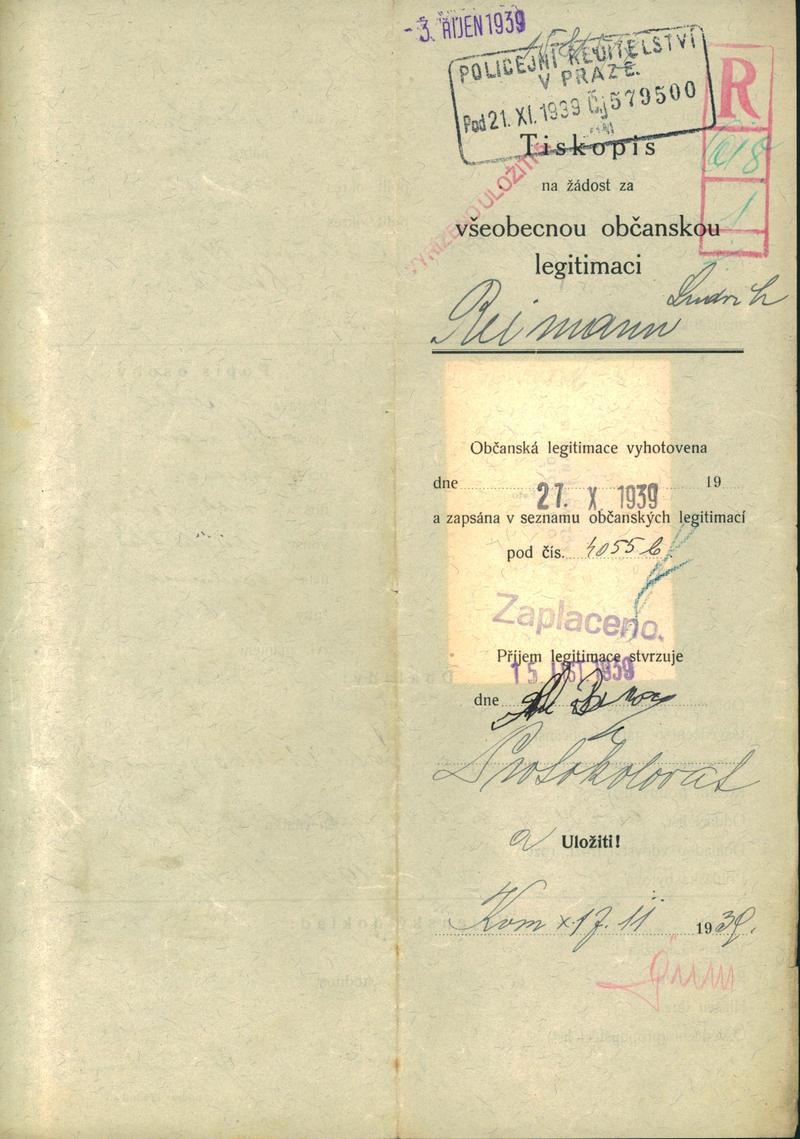 - 3. ŘÍJEN 1939
POLICEJNÍ ŘEDITELSTVÍ
V PRAZE.
Pod 21. XI. 1939 Čj 579500
R
618
1
Tiskopis
na žádost za
VYŘÍZENO ULOŽITI
všeobecnou občanskou
legitimaci
Reimann Jindřich
Občanská legitimace vyhotovena
dne 27. X. 1939 19
a zapsána v seznamu občanských legitimací
pod čís. 4055
Zaplaceno.
Příjem legitimace stvrzuje
15 LIST 1939
dne
Protokolovat
a Uložiti!
17. 11 1939.